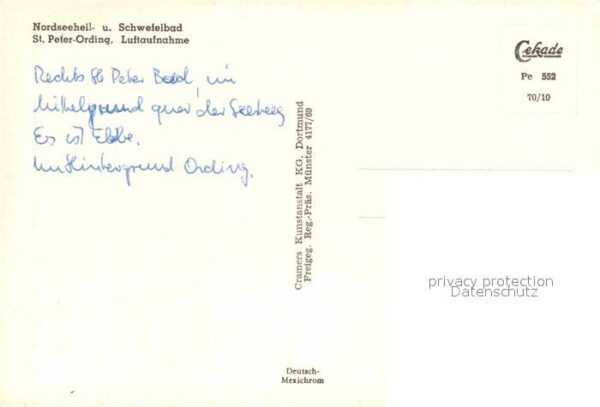 Nordseeheil- u. Schwefelbad
St. Peter-Ording, Luftaufnahme
Cekade
Pe 552
70/10
Rechts St Peter Bad, im
Mittelgrund quer der Seesteg
Es ist Ebbe.
Im Hintergrund Ording.
Cramers Kunstanstalt KG, Dortmund
Freigeg. Reg.-Präs. Münster 4177/69
privacy protection
Datenschutz
Deutsch-
Mexichrom